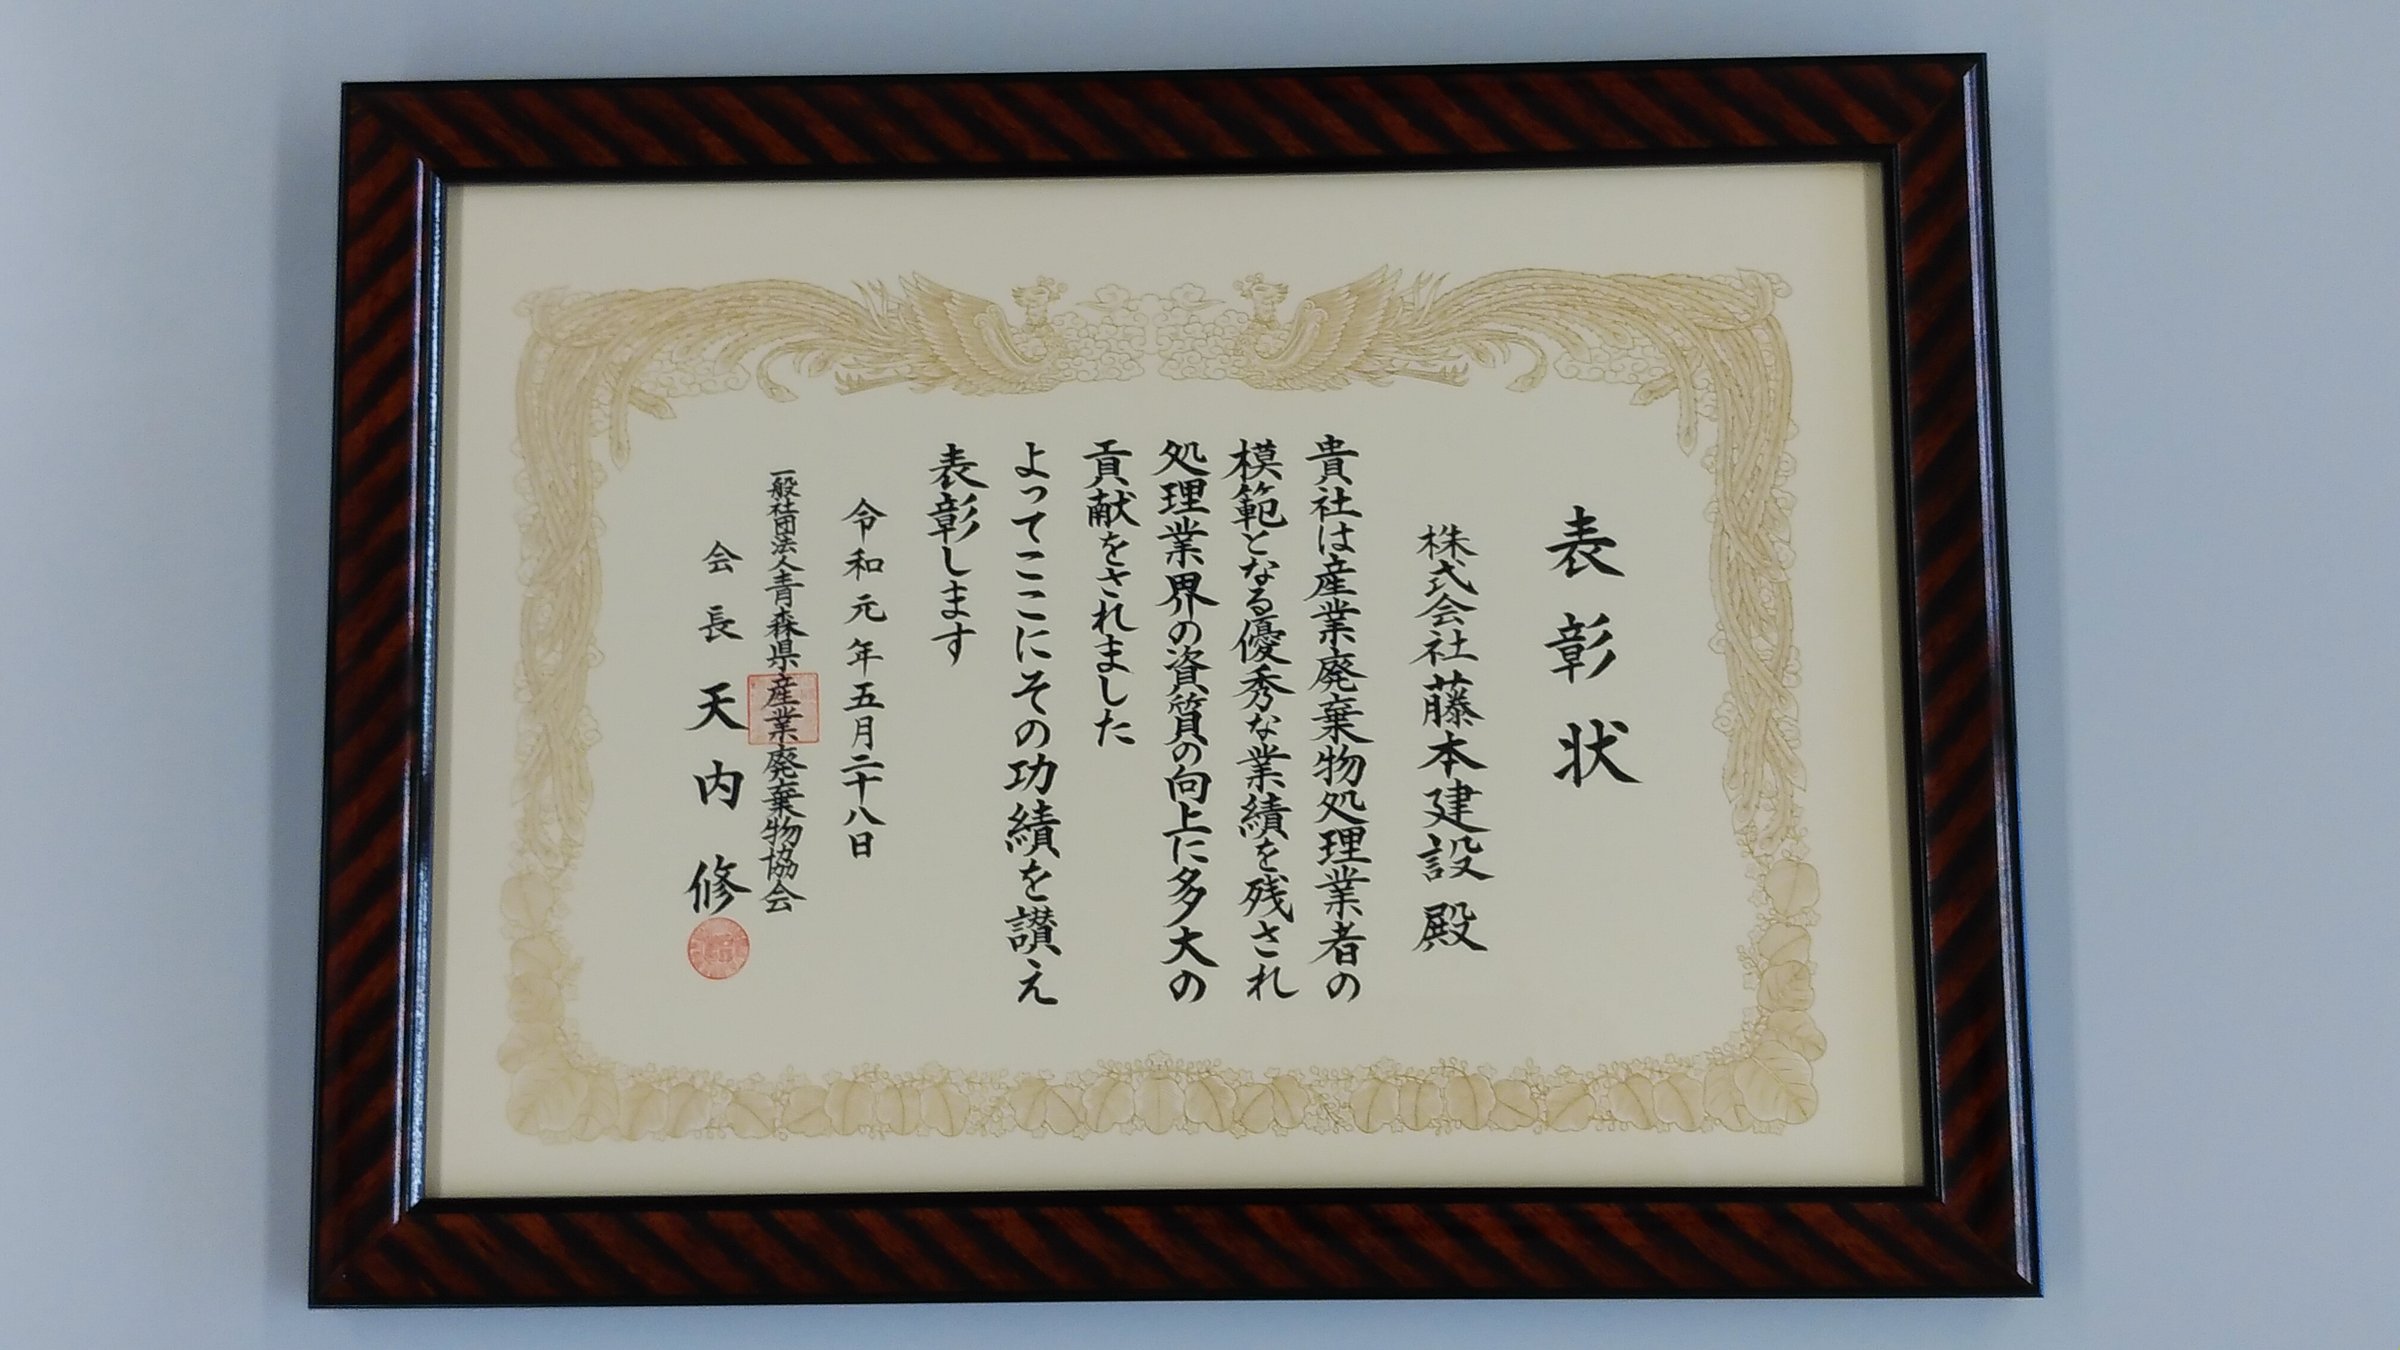 表彰状
株式会社藤本建設殿
貴社は産業廃棄物処理業者の
模範となる優秀な業績を残され
処理業界の資質の向上に多大の
貢献をされました
よってここにその功績を讃え
表彰します
令和元年五月二十八日
一般社団法人青森県産業廃棄物協会
会長天内修